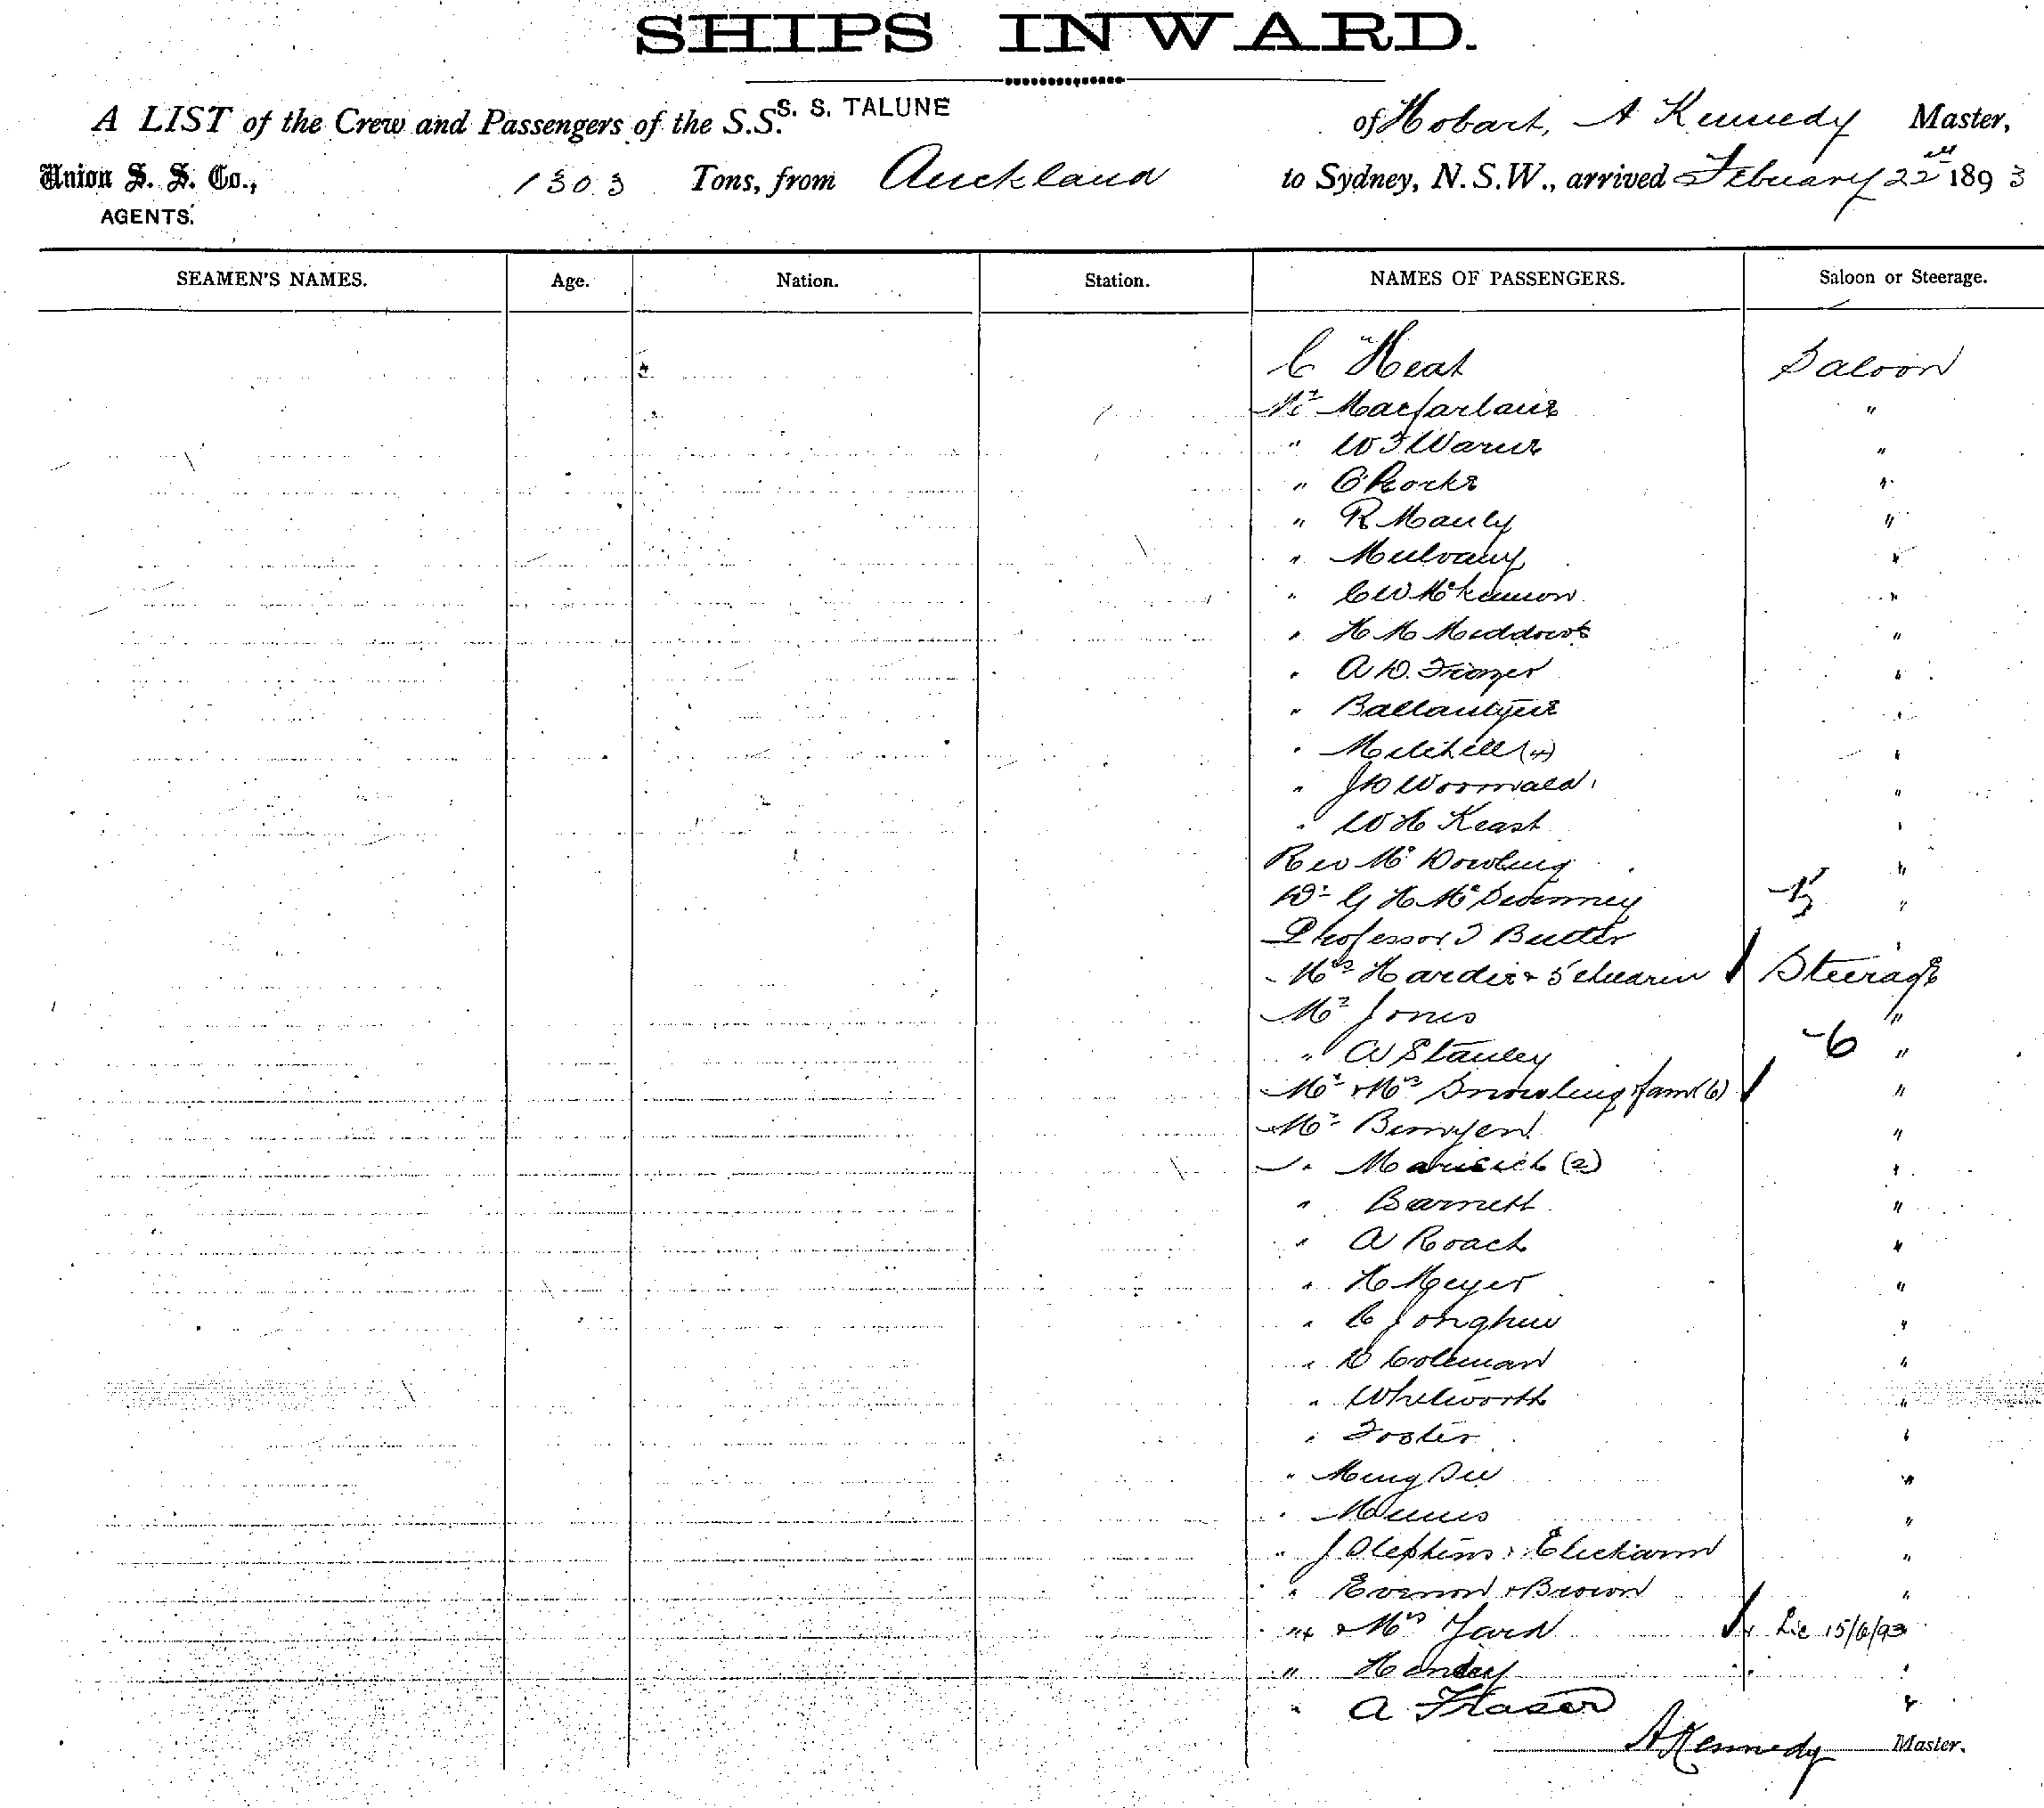 SHIPS INWARD.
A LIST of the Crew and Passengers of the S.S. S. S. TALUNE of Hobart, A Kennedy Master,
Union S. S. Co., 1303 Tons, from Auckland to Sydney, N.S.W., arrived Febuary 22nd 1893
AGENTS.
SEAMEN'S NAMES. Age. Nation. Station. NAMES OF PASSENGERS. Saloon or Steerage.
C Heat Saloon
Mr Macfarlane "
" W F Warne "
" C Rocke "
" R Manly "
" Mulvany "
" C W McKinnon "
" H M Meddows "
" A D. Frazer "
" Ballantyne "
" Mitchell (4) "
" J D Wormald "
" W H Keast "
Rev Mr Dowling "
Dr G H "
Professor J Butler "
Mrs Hardie & 5 children Steerage
Mr Jones "
" A Stanley 6 "
Mr & Mrs Snowling & fam (6) "
Mr "
" (2) "
" Barnett "
" A Roach "
" H Meyer "
" C "
" D Coleman "
" Whitworth "
" Foster "
" "
" "
" J "
" & Brown "
" & Mrs Lic 15/6/93
" "
" A Fraser "
A Kennedy Master.